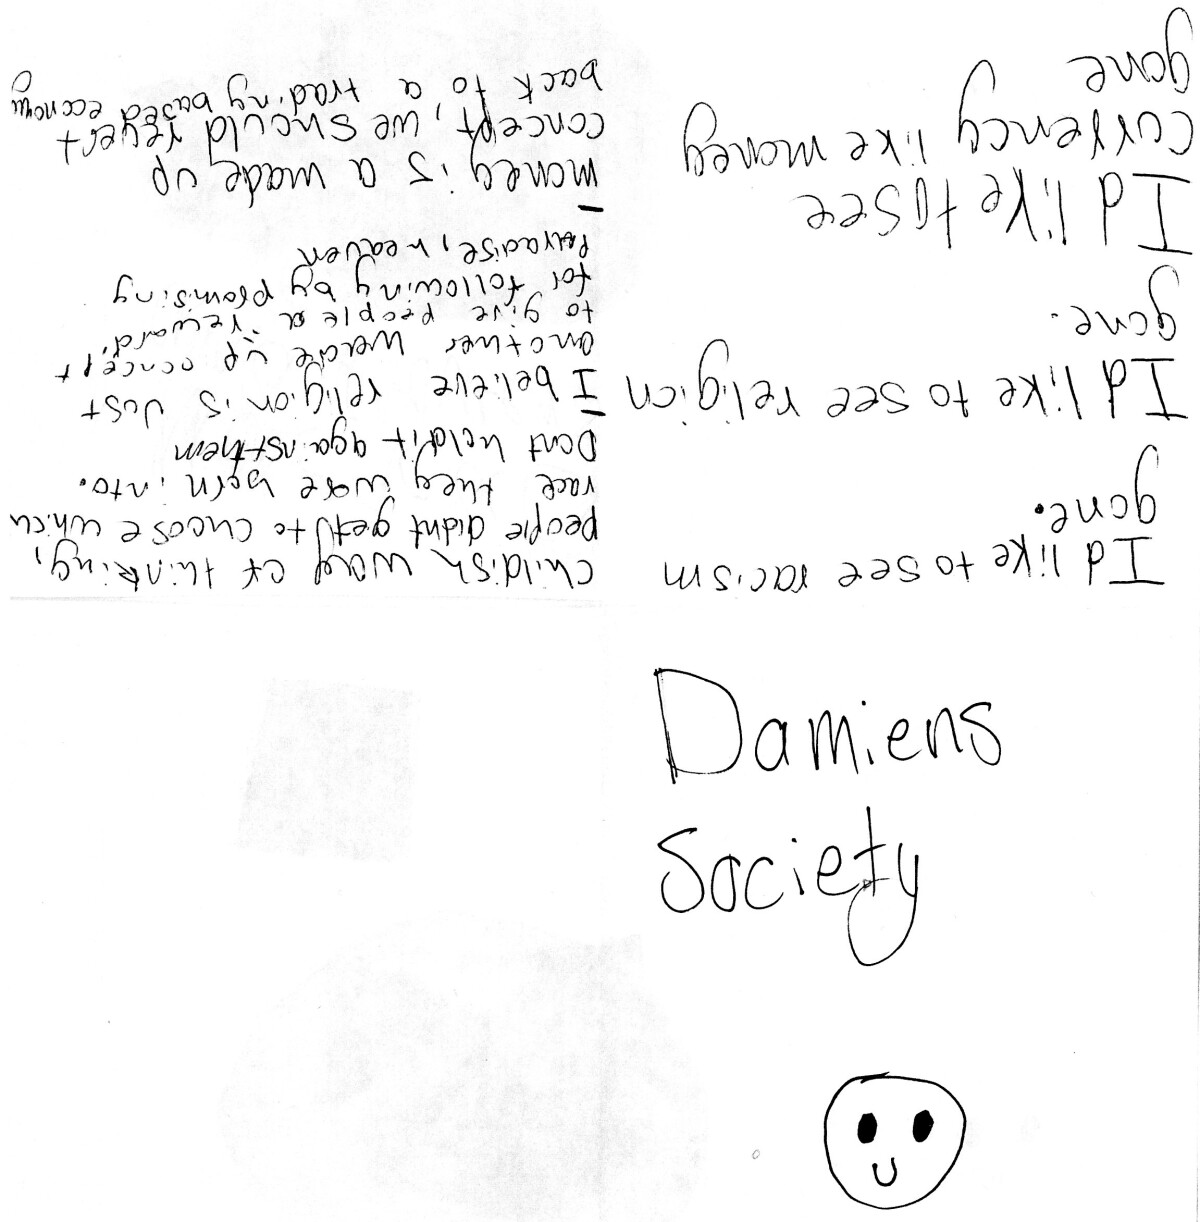 Damiens
Society
I'd like to see racism
gone.
I'd like to see religion
gone.
I'd like to see
currency like money
gone
childish way of thinking,
people didnt get to choose which
race they were born into.
Dont hold it against them
I believe religion is Just
another made up concept
to give people a "reward"
for following by promising
Paradise, heaven
money is a made up
concept, we should revert
back to a trading based economy